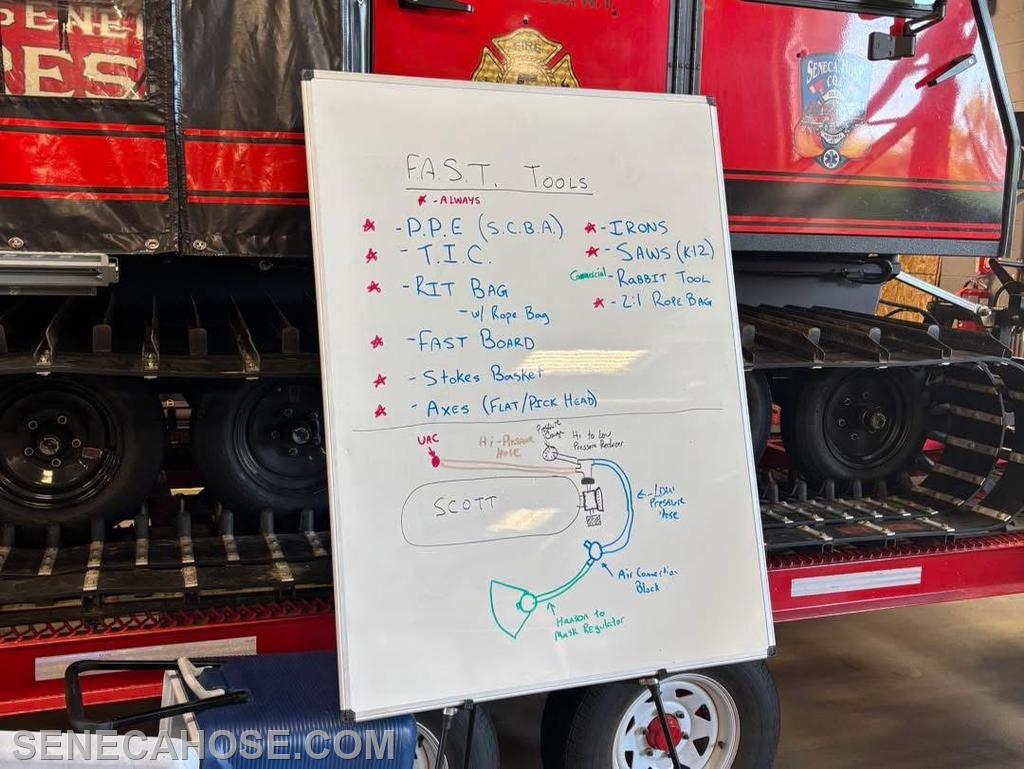 SENE
RES
FIRE
SENECA HOSE
CO.
F.A.S.T. TOOLS
* - ALWAYS
* - P.P.E (S.C.B.A.)
* - T.I.C.
* - RIT BAG
- w/ Rope Bag
* - FAST BOARD
* - Stokes Basket
* - AXES (FLAT/PICK HEAD)
* - IRONS
* - SAWS (K12)
Commercial - RABBIT TOOL
* - 2:1 ROPE BAG
UAC
Hi-Pressure
Hose
Pressure
Gauge
Hi to Low
Pressure Reducer
SCOTT
Low
Pressure
Hose
Air Connection
Block
to
Mask Regulator
SENECAHOSE.COM